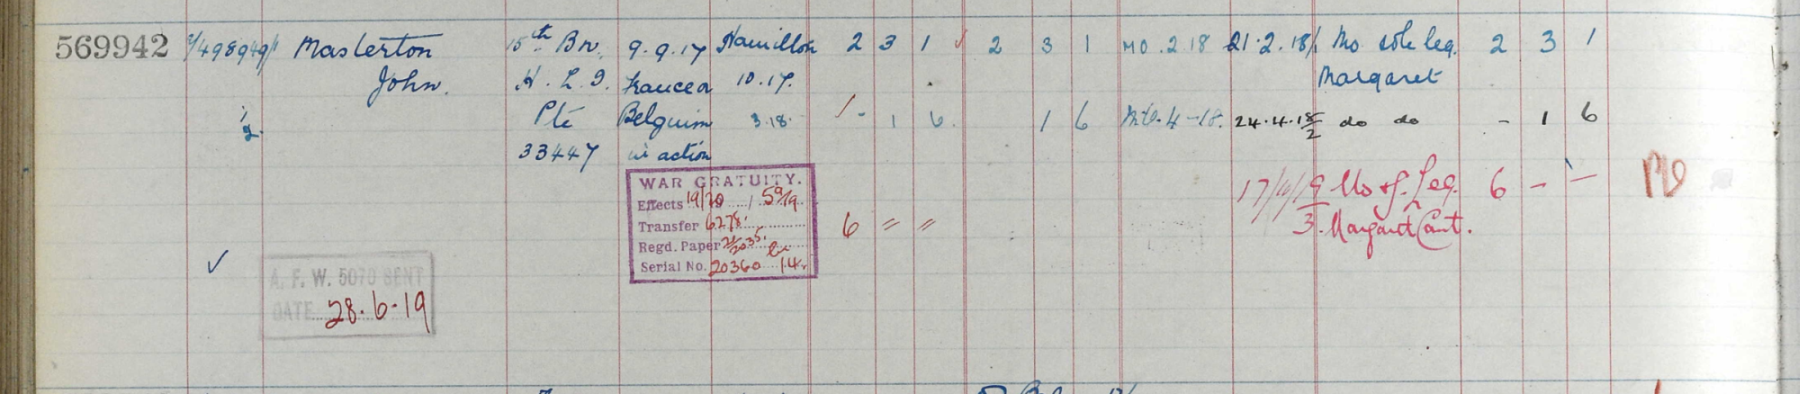 569942 Masterton 15th Bn. 9.9.17 Hamilton 2 3 1 2 3 1 MO. 2 18 21.2.18/1 Mo sole leg. 2 3 1
John. H. L. I. France or 10.17. Margaret
2 Pte Belguim 3.18. - 1 6. 1 6 Mo. 4-18. 24.4.18/2 do do - 1 6
33447 in action
WAR GRATUITY. 17/9/19 Mo & s. Leg. 6 - -
Effects 19/20 59/9 3. Margaret Cant.
Transfer 6 " "
Regd. Paper
Serial No. 20360 14.
A. F. W. 5070 SENT
DATE 28.6.19